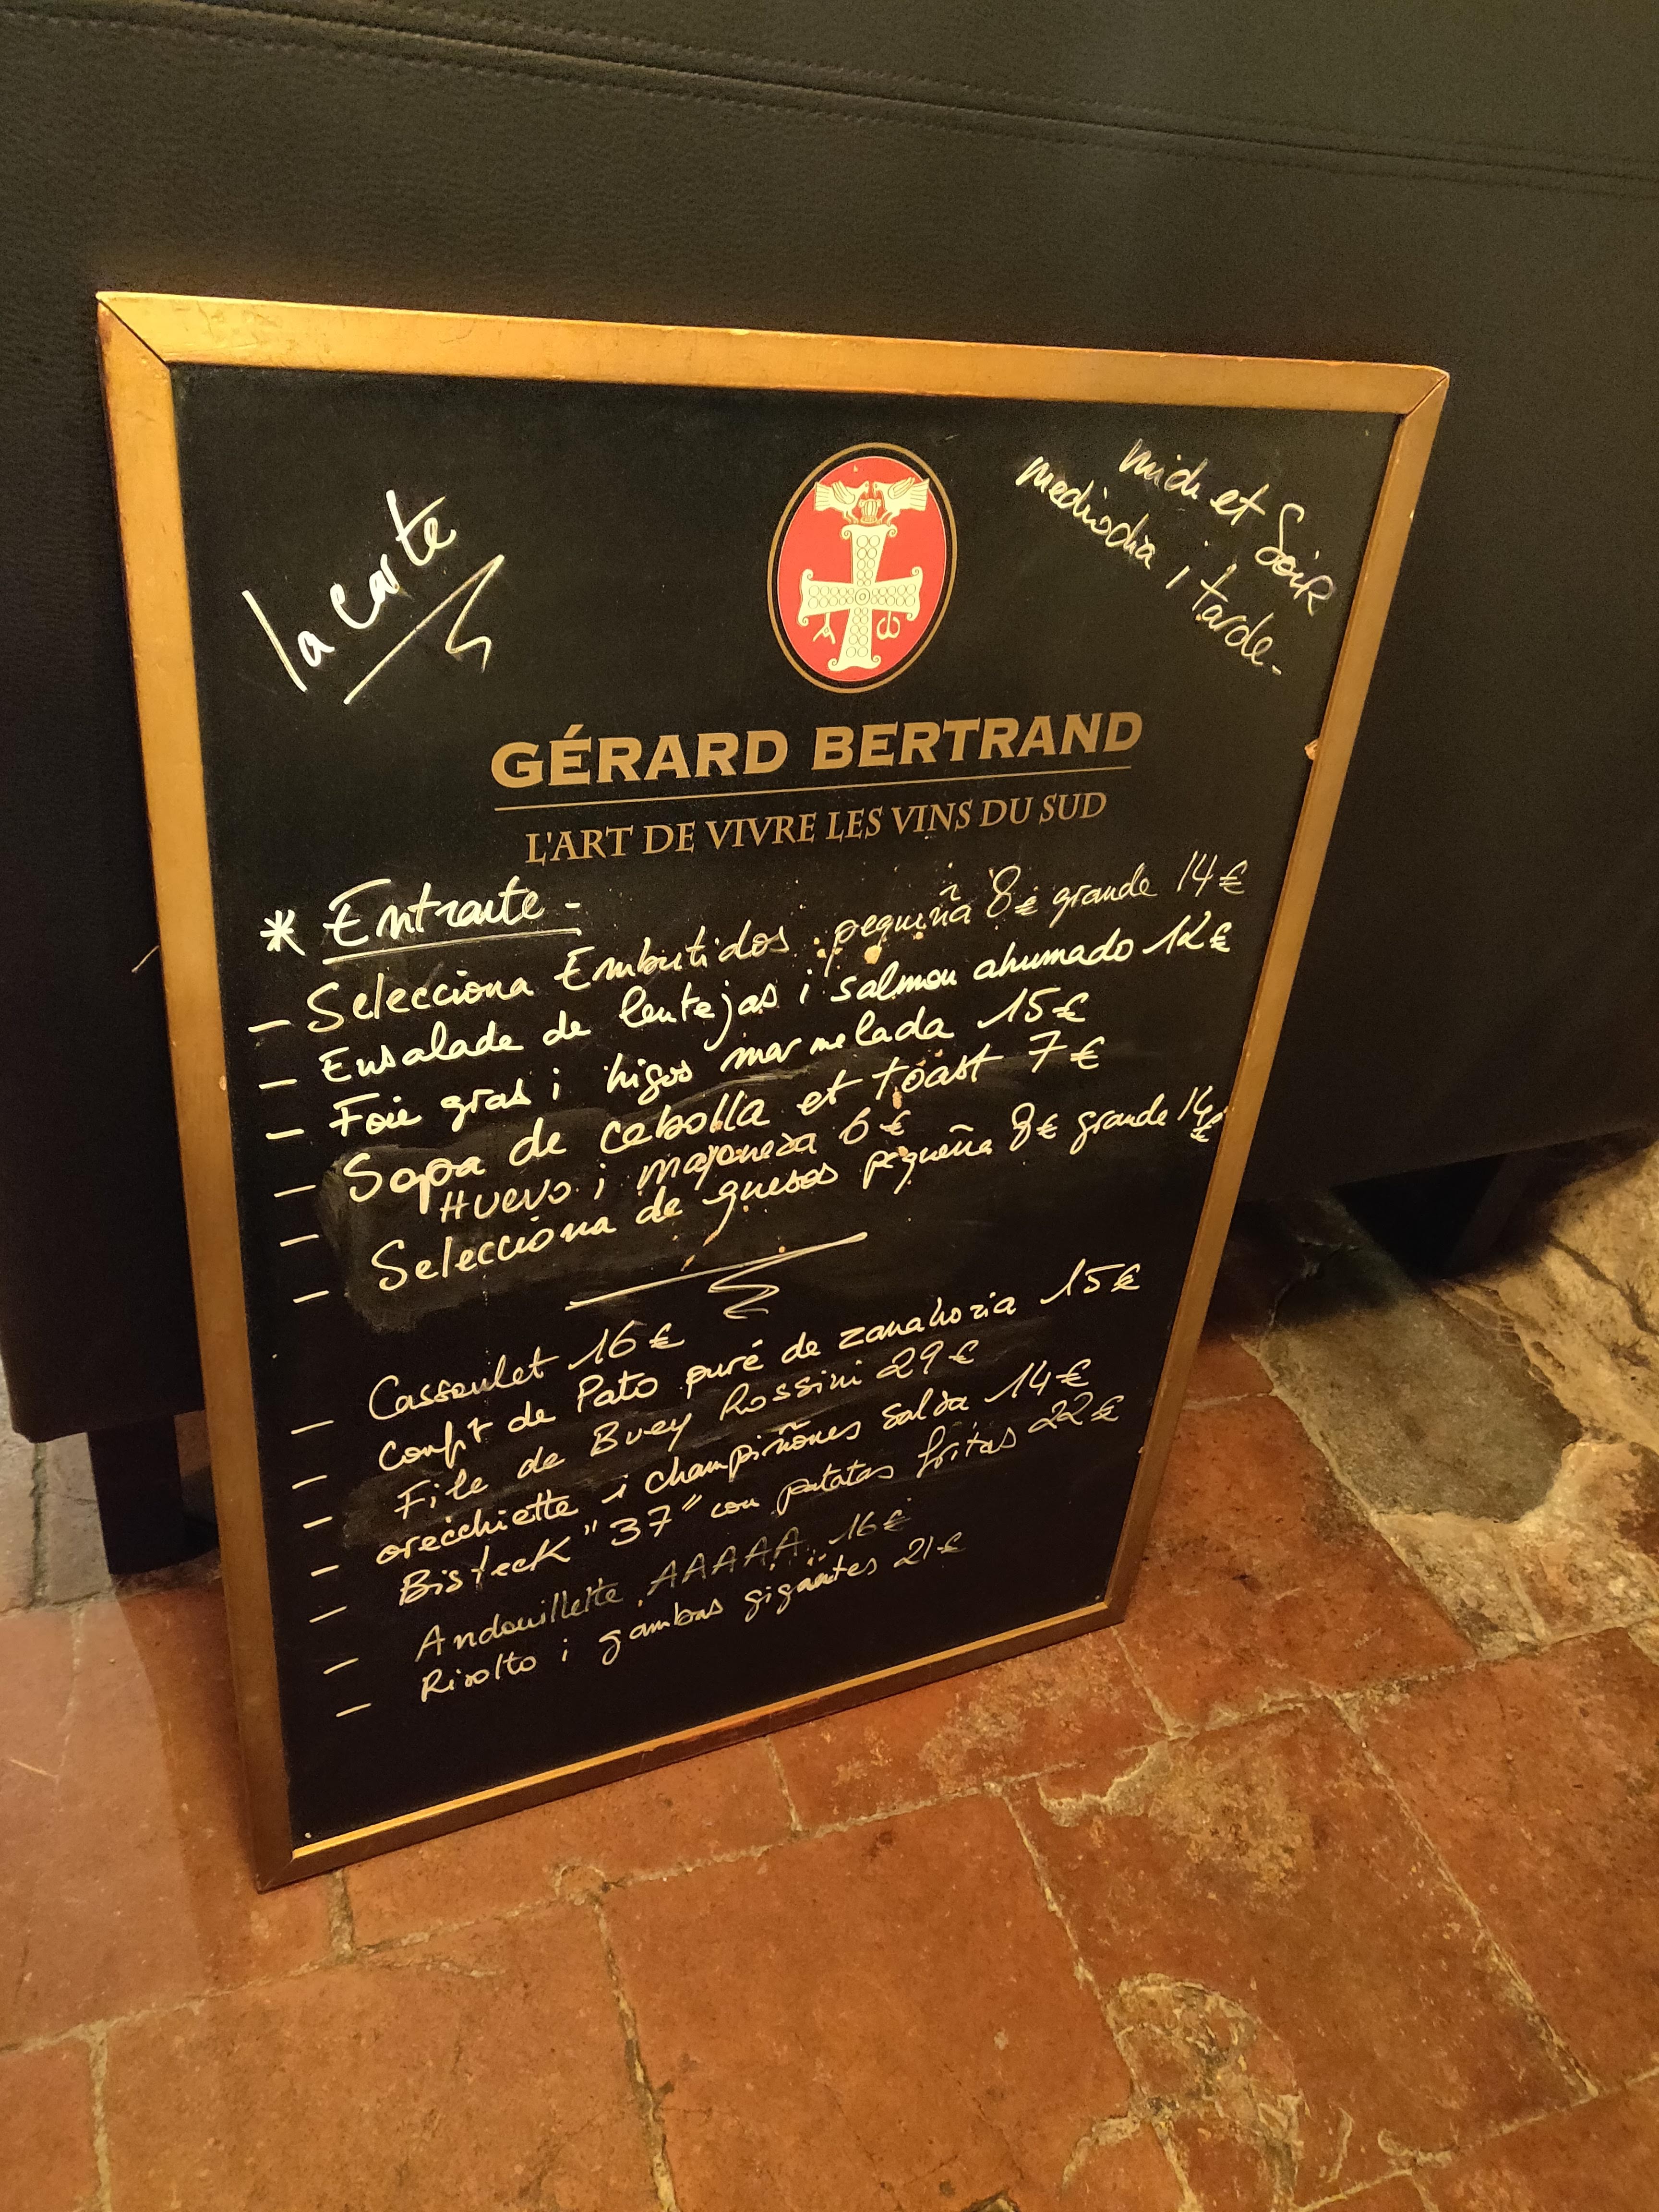 la carte
midi et Soir
mediodia i tarde-
GÉRARD BERTRAND
L'ART DE VIVRE LES VINS DU SUD
* Entrante -
- Selecciona Embutidos pequeña 8€ grande 14€
- Ensalade de lentejas i salmon ahumado 12€
- Foie gras i higos marmelada 15€
- Sopa de cebolla et toast 7€
- Huevo i majonesa 6€
- Selecciona de quesos pequeña 8€ grande 14€
- Cassoulet 16€
- Confit de Pato puré de zanahoria 15€
- File de Buey Rossini 29€
- orecchiette i champiñones salsa 14€
- Bisteck "37" con patatas fritas 22€
- Andouillette AAAAA 16€
- Risotto i gambas gigantes 21€